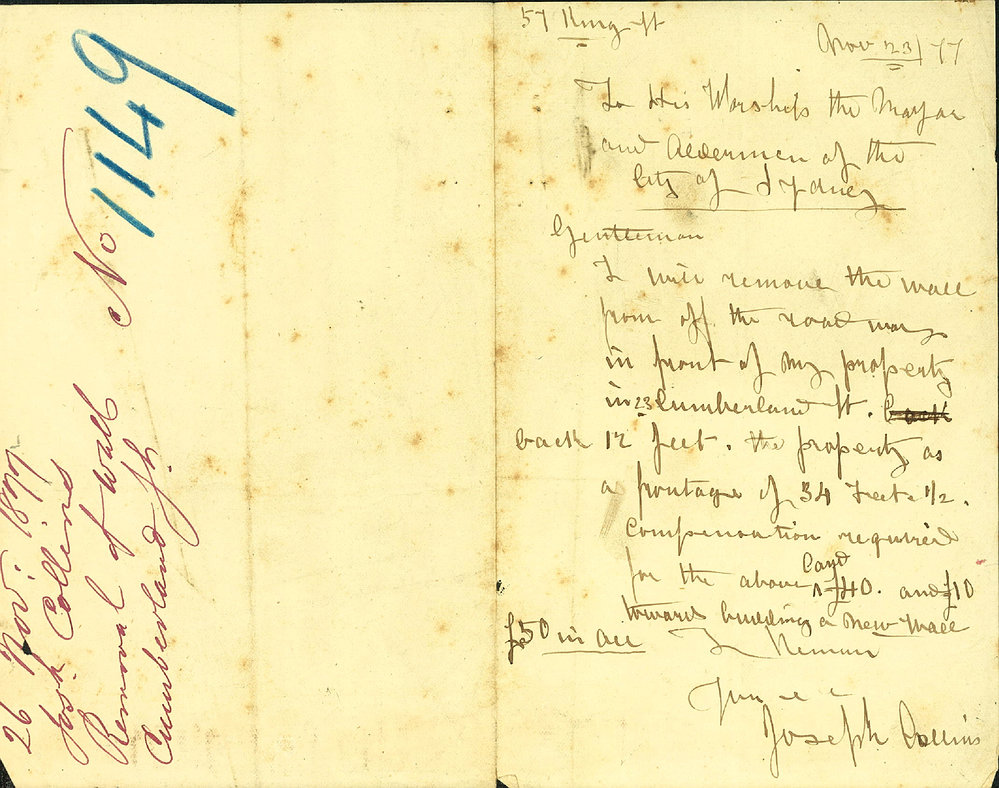 No 1149
26 Nov: 1877
Josh Collins
Removal of wall
Cumberland St.
57 King St
Nov 23/77
To His Worship the Mayor
and Aldermen of the
City of Sydney
Gentleman
I will remove the wall
from off the road way
in front of my property
in 23 Cumberland St.
back 12 feet. the property as
a frontage of 34 Feet 1/2.
Compensation required
for the above Land £40. and £10
towards building a New Wall
£50 in all
I Remain
Joseph Collins